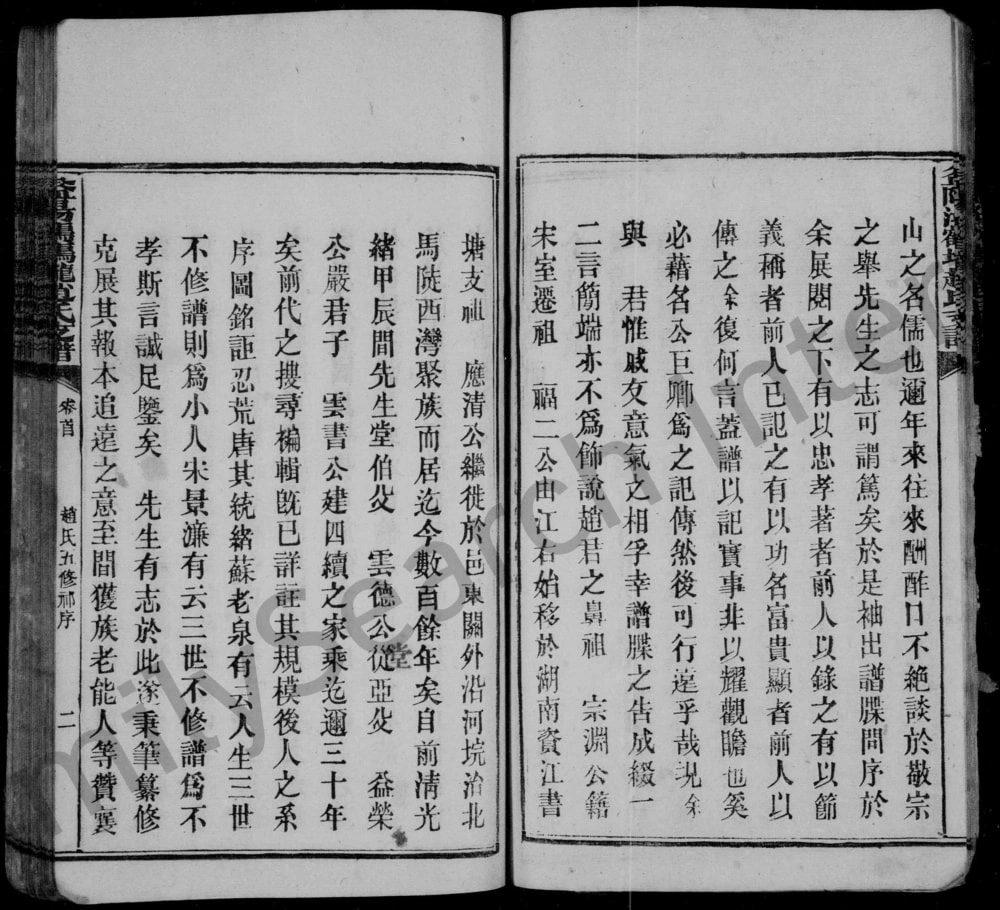 山之名儒也邇年來往來酬酢口不絕談於敬宗
之舉先生之志可謂篤矣於是袖出譜牒問序於
余展閱之下有以忠孝著者前人以錄之有以節
義稱者前人已記之有以功名富貴顯者前人以
傳之余復何言蓋譜以記實事非以耀觀瞻也奚
必藉名公巨卿爲之記傳然後可行遠乎哉現余
與 君惟戚友意氣之相孚幸譜牒之告成綴一
二言簡端亦不爲飾說趙君之鼻祖 宗淵公籍
宋室遷祖 福二公由江右始移於湖南資江書
塘支祖 應清公繼徙於邑東關外沿河垸治北
馬陡西灣聚族而居迄今數百餘年矣自前淸光
緒甲辰間先生堂伯父 雲德公從堂亞父 益榮
公嚴君子 雲書公建四續之家乘迄邇三十年
矣前代之搜尋褊輯旣已詳註其規模後人之系
序圖銘詎忍荒唐其統緒蘇老泉有云人生三世
不修譜則爲小人宋景濂有云三世不修譜爲不
孝斯言誠足鑒矣 先生有志於此遂秉筆纂修
克展其報本追遠之意至間獲族老能人等贊襄
卷首
趙氏五修祁序
二
milySearch Inter